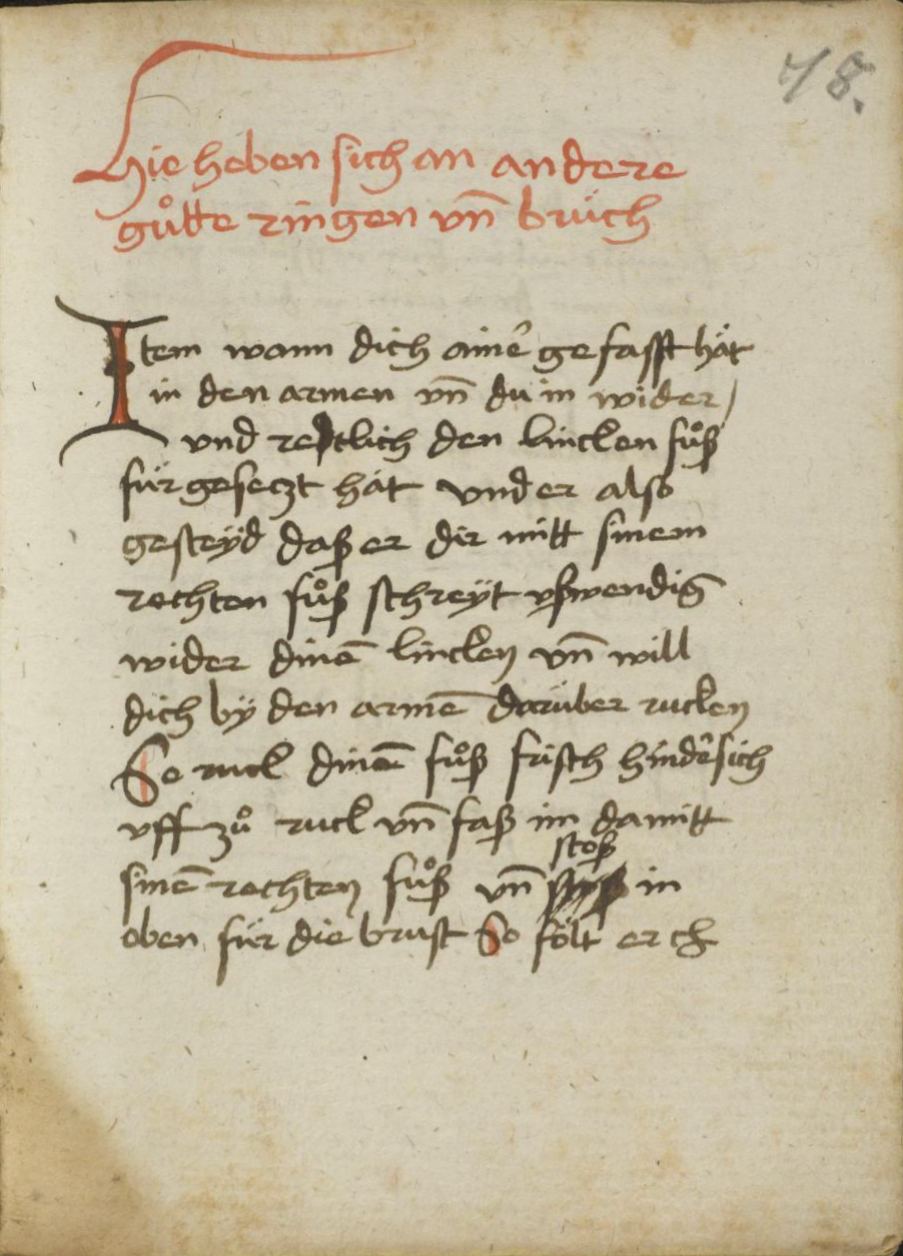 78.
Hie heben sich an andere
gůtte ringen vn̄ brüch
Item wann dich aine᷑ gefasst hät
in den armen vn̄ du in wider /
vnd redtlich den lincken fůß
für gesetzt hät vnd er also
gesteÿd daß er dir mitt sinem
rechten fůß schreÿt vßwendig
wider dinē lincken vn̄ will
dich bÿ den armē darüber rucken
So ruck dinēn fůß frisch hinde᷑sich
vff zů ruck vn̄ faß im damitt
sinē rechten fůß vn̄ stoß in
oben für die brust So fölt er ꝛc